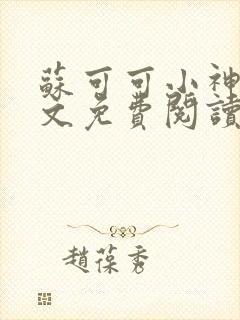 蘇可可小神
文免費閱讀
趙葆秀